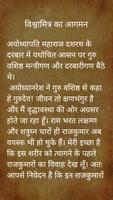 विश्वामित्र का आगमन
अयोध्यापति महाराज दशरथ के
दरबार में यथोचित आसन पर गुरु
वशिष्ठ मन्त्रीगण और दरबारीगण बैठे
थे।
अयोध्यानरेश ने गुरु वशिष्ठ से कहा
हे गुरुदेव! जीवन तो क्षणभंगुर है
और मैं वृद्धावस्था की ओर अग्रसर
होते जा रहा हूँ। राम भरत लक्ष्मण
और शत्रुघ्न चारों ही राजकुमार अब
वयस्क भी हो चुके हैं। मेरी इच्छा है
कि इस शरीर को त्यागने के पहले
राजकुमारों का विवाह देख लूँ। अतः
आपसे निवेदन है कि इन राजकुमारों